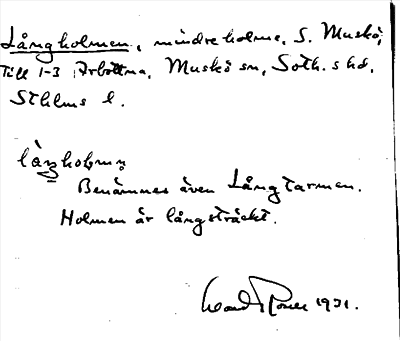 Långholmen, mindre holme, S. Muskö,
Till 1-3 Arbottna, Muskö sn, Soth. shd,
Sthlms l.
långholmen
Benämnes även Långtarmen.
Holmen är långsträckt.
1931.